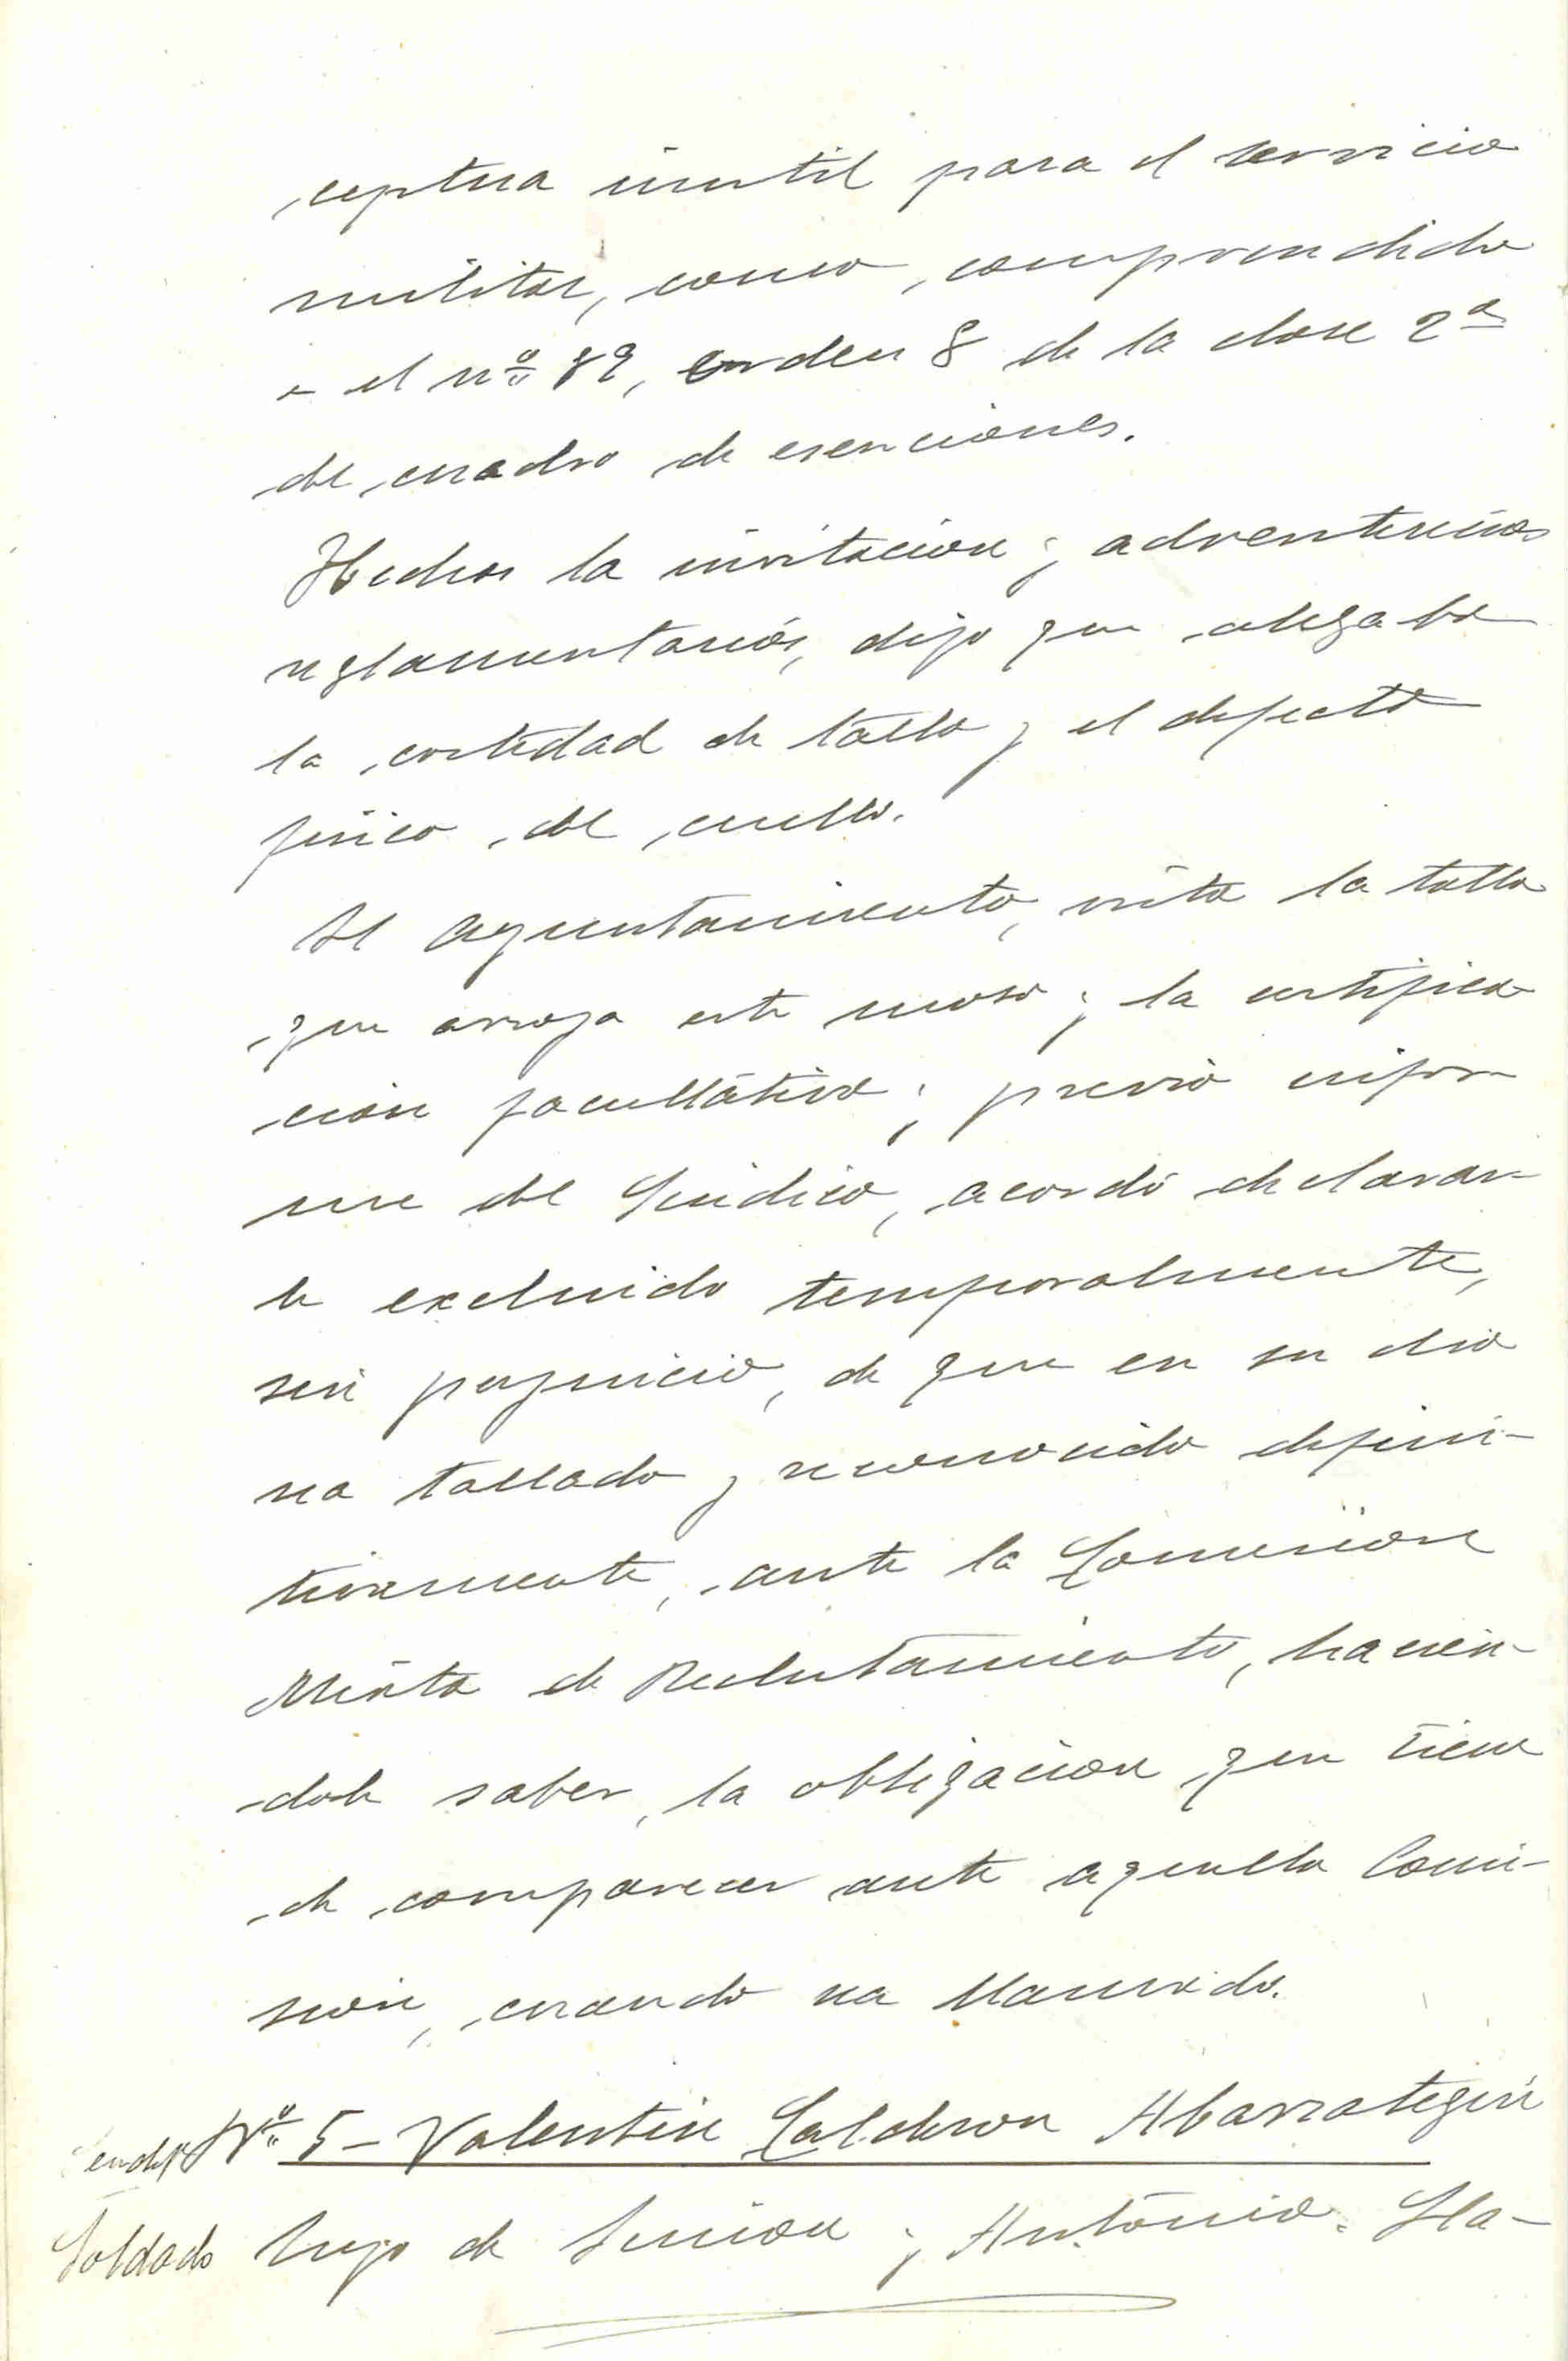 ceptua inutil para el servicio
militar, como comprendido
en el nº 89, orden 8 de la clase 2ª
del cuadro de esenciones.
Hechas la invitacion y advertencias
reglamentarias, dijo que alegaba
la cortedad de talla y el defecto
fisico del cuello.
El Ayuntamiento, vista la talla
que arroja este mozo y la certifica
cion facultativa y previo infor
me del Sindico, acordó declarar
le excluido temporalmente,
sin perjuicio, de que en su dia
sea tallado y reconocido defini-
tivamente, ante la Comision
Mixta de Reclutamiento, hacien-
dole saber, la obligacion que tiene
de comparecer ante aquella Comi-
sion, cuando sea llamado.
Nº 5 - Valentin Calderon Abarrategui
Soldado hijo de Simon y Antonia. Lla-